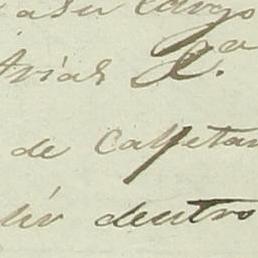 a su cargo
Arias D.ª
de Cayetan
dentro